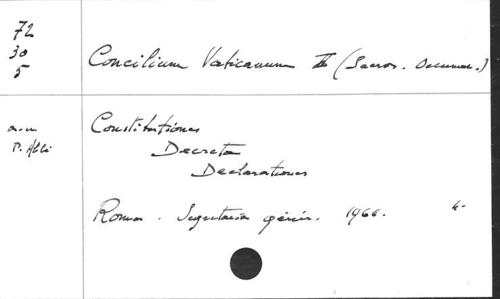 72
30
5
Concilium Vaticanum II (Sacros. Oecumen.)
Constitutiones
Decreta
Declarationes
Roma. génér. 1966.